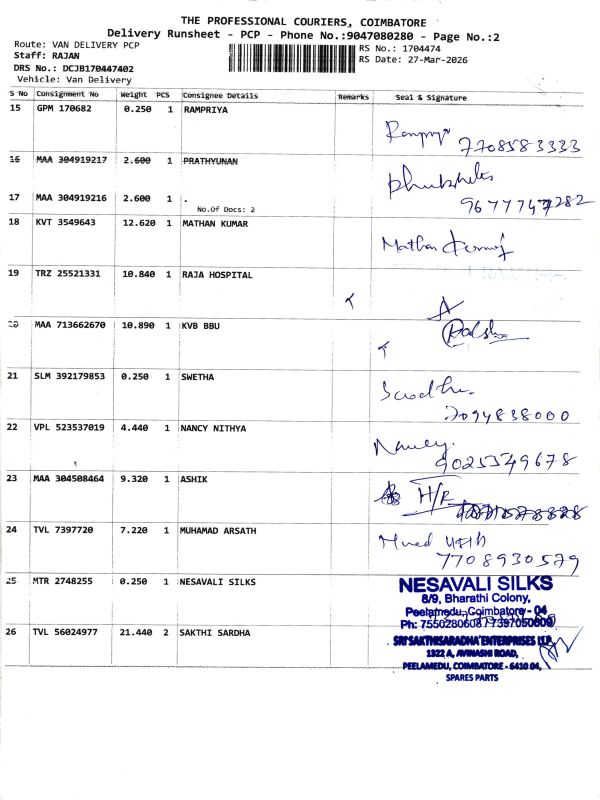 THE PROFESSIONAL COURIERS, COIMBATORE
Delivery Runsheet - PCP - Phone No.:9047080280 - Page No.:2
Route: VAN DELIVERY PCP
Staff: RAJAN
DRS No.: DCJB170447402
Vehicle: Van Delivery
RS No.: 1704474
RS Date: 27-Mar-2026
S No Consignment No Weight PCS Consignee Details Remarks Seal & Signature
15 GPM 170682 0.250 1 RAMPRIYA
7708583333
16 MAA 304919217 2.600 1 PRATHYUNAN
17 MAA 304919216 2.600 1 .
No.Of Docs: 2
9677747282
18 KVT 3549643 12.620 1 MATHAN KUMAR
Mathan Kumar
19 TRZ 25521331 10.840 1 RAJA HOSPITAL
20 MAA 713662670 10.890 1 KVB BBU
21 SLM 392179853 0.250 1 SWETHA
7094838000
22 VPL 523537019 4.440 1 NANCY NITHYA
Nancy.
9025349678
23 MAA 304508464 9.320 1 ASHIK
H/R
24 TVL 7397720 7.220 1 MUHAMAD ARSATH
7708930579
25 MTR 2748255 0.250 1 NESAVALI SILKS
NESAVALI SILKS
8/9, Bharathi Colony,
Peelamedu, Coimbatore - 04
Ph: 7550280608 / 7397050609
26 TVL 56024977 21.440 2 SAKTHI SARDHA
SRI SAKTHISARADHA ENTERPRISES LLP
1322 A, AVINASHI ROAD,
PEELAMEDU, COIMBATORE - 641004,
SPARES PARTS